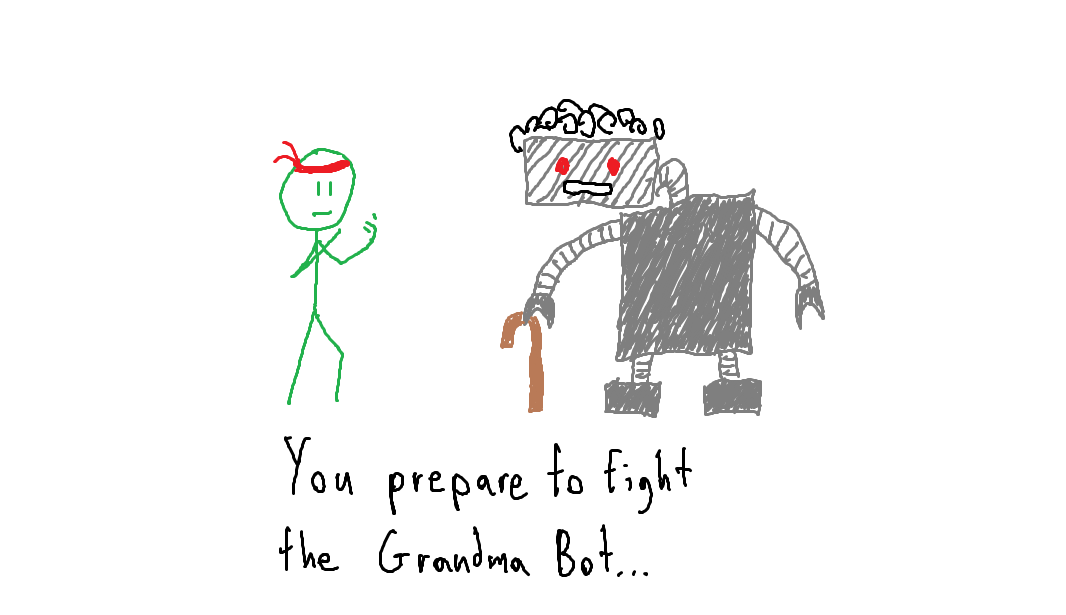 You prepare to fight
the Grandma Bot...